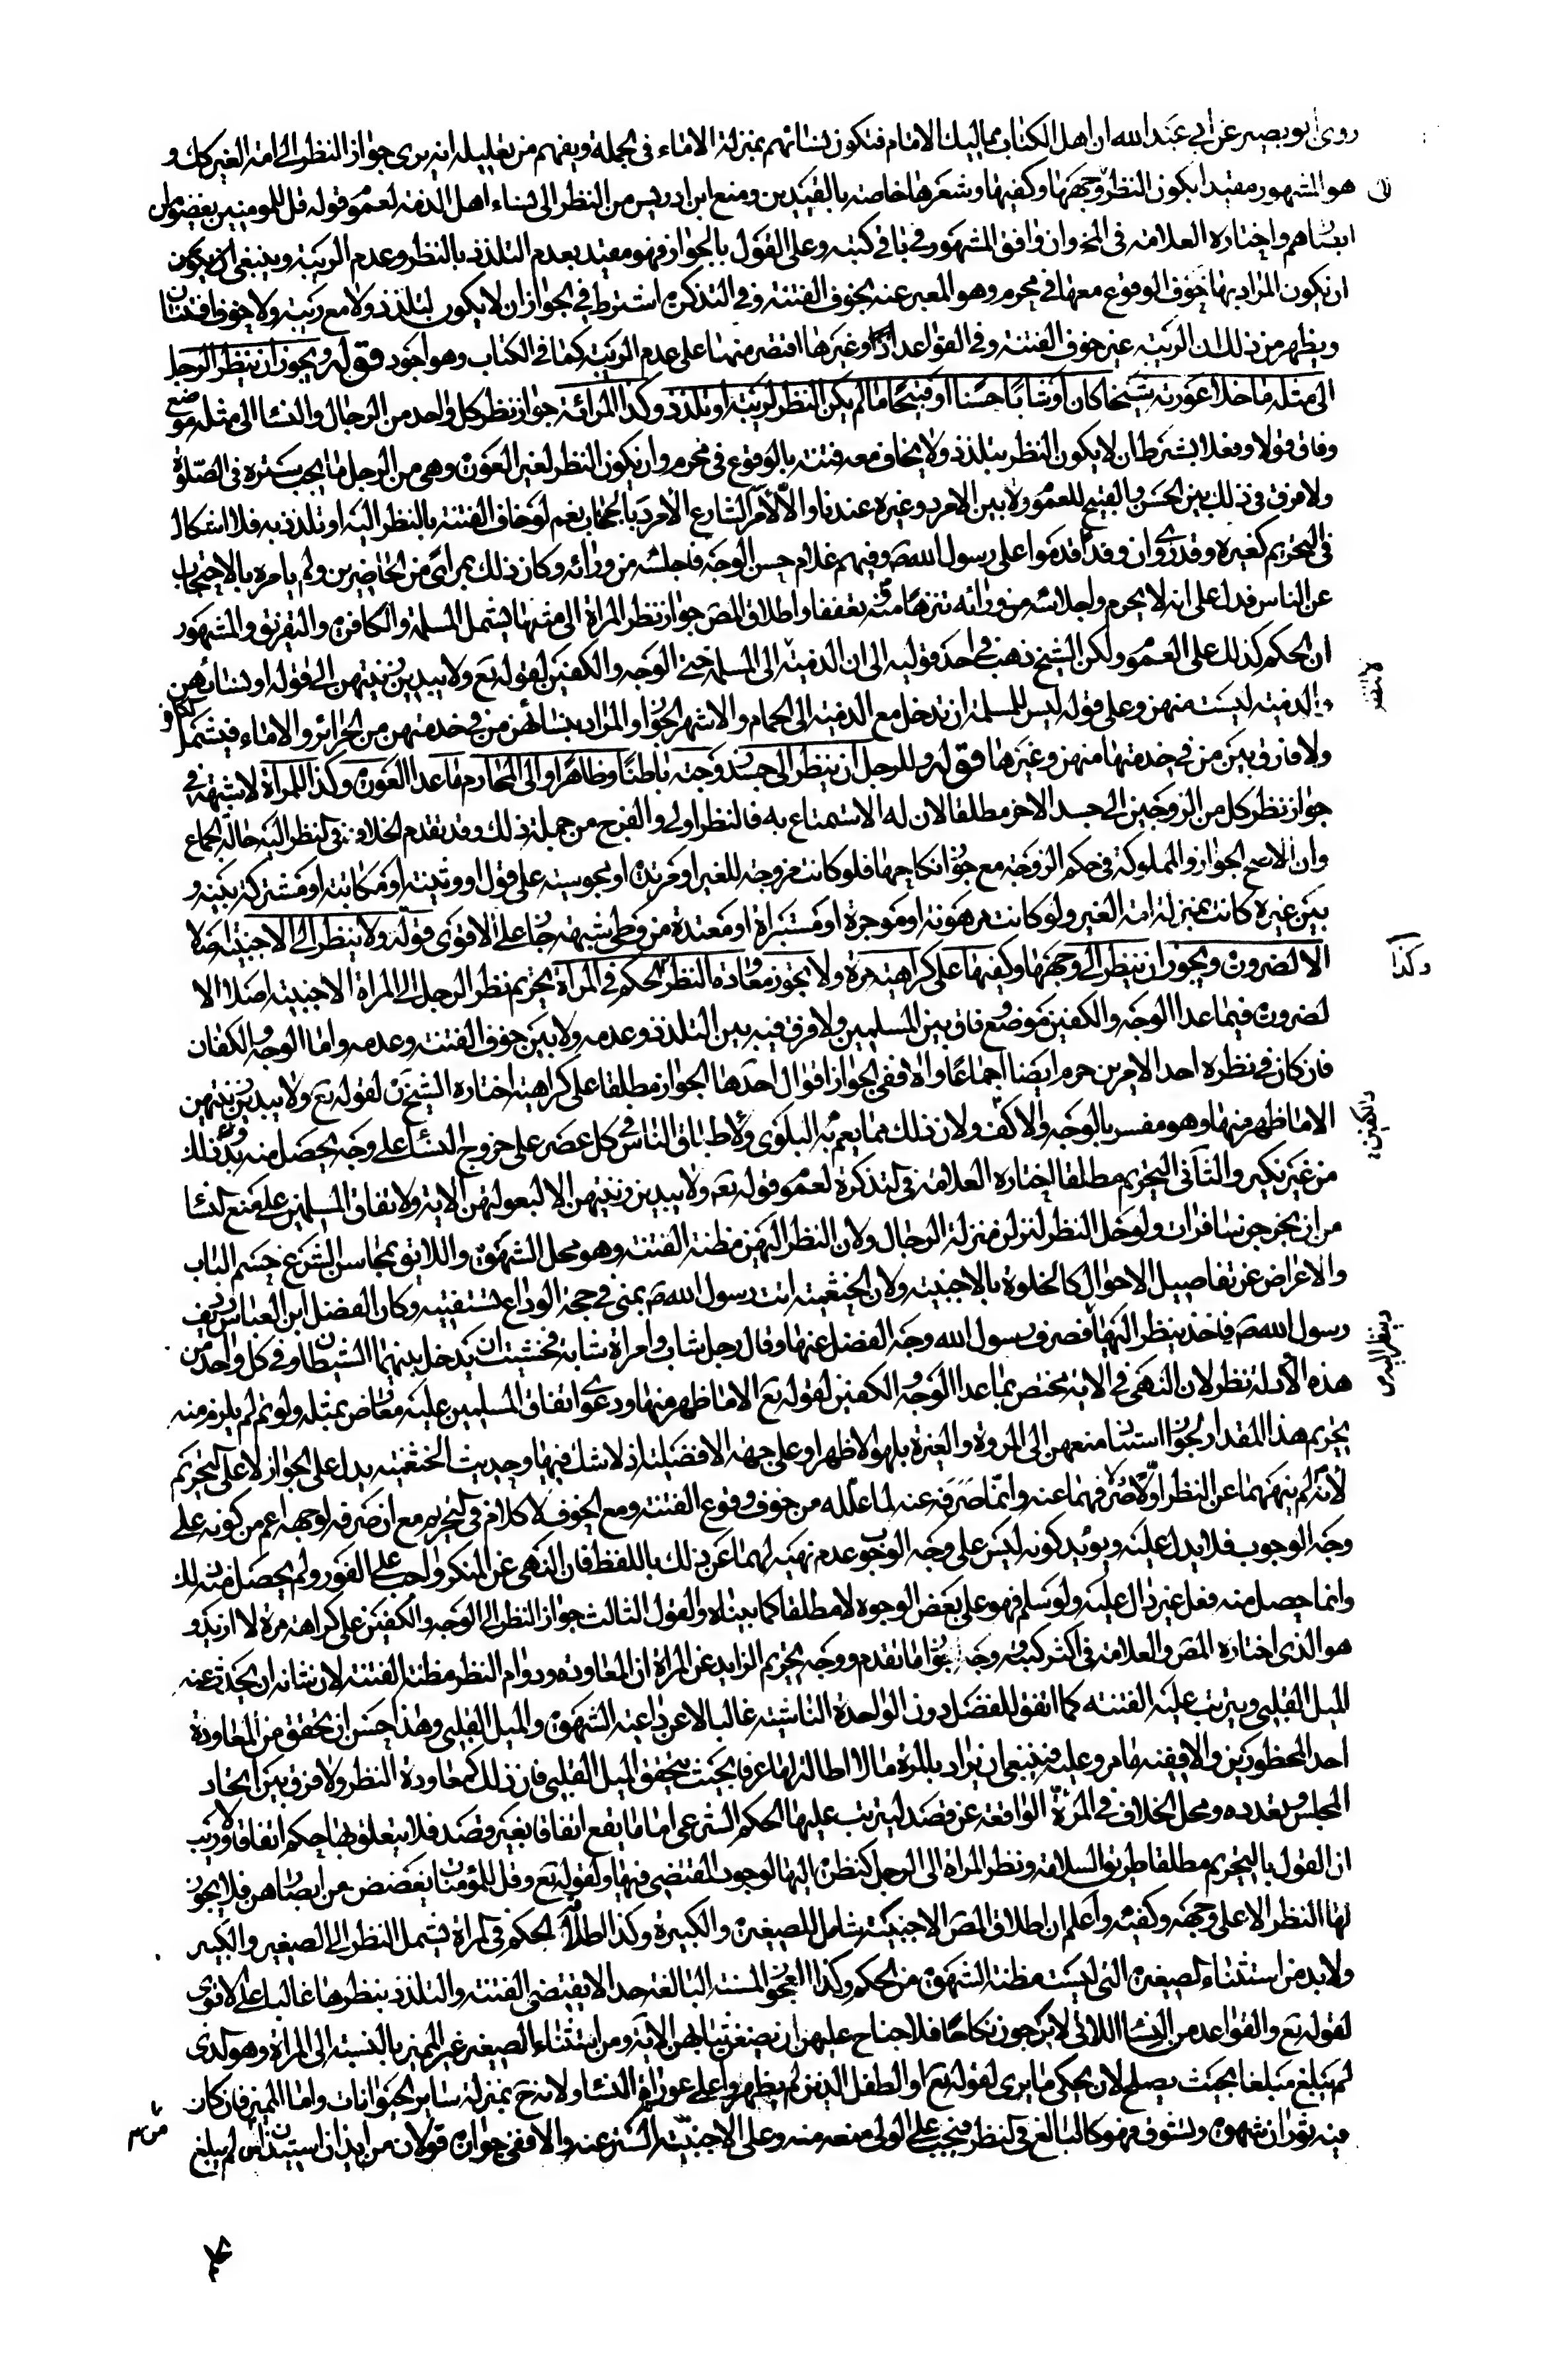 روى ابو بصير عن ابي عبد الله ان اهل الكتاب مماليك الامام فتكون نسائهم بمنزلة الاماء في الجملة ويفهم من تعليله انه يرى جواز النظر الى امة الغير كك و
هو المشهور مقيدا بكون النظر لوجهها وكفيها وشعرها خاصة بالقيدين ومنع ابن ادريس من النظر الى نساء اهل الذمة لعموم قوله قل للمومنين يغضوا من
ابصارهم واختاره العلامة في المخ وان وافق المشهور في باقي كتبه وعلى القول بالجواز فهو مقيد بعدم التلذذ بالنظر وعدم الريبة وينبغي ان يكون
ان يكون المراد بها خوف الوقوع معها في محرم وهو المعبر عنه بخوف الفتنة وفي التذكرة اشترط في الجواز ان لا يكون لتلذذ ولا مع ريبة ولا خوف افتتان
ويظهر من ذلك ان الريبة غير خوف الفتنة وفي القواعد وغيرها اقتصر منهما على عدم الريبة كما في الكتاب وهو اجود قوله ويجوز ان ينظر الرجل
الى مثله ما خلا عورته شيخا كان او شابا حسنا او قبيحا ما لم يكن النظر لريبة او تلذذ وكذا المرائة جواز نظر كل واحد من الرجال والنسا الى مثله موضع
وفاق قولا وفعلا بشرط ان لا يكون النظر بتلذذ ولا يخاف معه فتنة بالوقوع في محرم وان يكون النظر لغير العورة وهي من الرجل ما يجب ستره في الصلوة
ولا فرق في ذلك بين الحسن والقبيح للعموم ولا بين الامرد وغيره عندنا والا لامر الشارع الامرد بالحجاب نعم لو خاف الفتنة بالنظر اليه او تلذذ به فلا اشكال
في التحريم كغيره وقد روي ان وفدا قدموا على رسول الله ص وفيهم غلام حسن الوجه فاجلسه من ورائه وكان ذلك بمراى من الحاضرين ولم يامره بالاحتجاب
عن الناس فدل على انه لا يحرم واجلاسه من ورائه تنزها منه وتعففا واطلاق المص جواز نظر المراة الى مثلها يشمل المسلمة والكافرة والمشهور
ان الحكم كذلك على العموم ولكن الشيخ ذهب في احد قوليه الى ان الذمية لا تنظر الى المسلمة حتى الوجه والكفين لقوله تع ولا يبدين زينتهن الى قوله او نسائهن
والذمية ليست منهن وعلى قوله ليس للمسلمة ان تدخل مع الذمية الى الحمام والاشهر الجواز والمراد بنسائهن من في خدمتهن من الحرائر والاماء فيشمل الكافرة
ولا فارق بين من في خدمتها منهن وغيرها قوله وللرجل ان ينظر الى جسد زوجته باطنا وظاهرا والى المحارم ما عدا العورة وكذا للمراة لا شبهة في
جواز نظر كل من الزوجين الى جسد الاخر مطلقا لان له الاستمتاع به فالنظر اولى والفرج من جملة ذلك وقد تقدم الخلاف في النظر اليه حالة الجماع
وان الاصح الجواز والمملوكة في حكم الزوجة مع جواز نكاحها فلو كانت مزوجة للغير او مرتدة او مجوسية على قول او وثنية او مكاتبة او مشتركة بينه و
بين غيره كانت بمنزلة امة الغير ولو كانت مرهونة او موجرة او مستبراة او معتدة من وطى شبهة جاز على الاقوى قوله ولا ينظر الى الاجنبية اصلا
الا لضرورة ويجوز ان ينظر الى وجهها وكفيها على كراهية مرة ولا يجوز معاودة النظر وكذا الحكم في المراة تحريم نظر الرجل الى المراة الاجنبية اصلا الا
لضرورة فيما عدا الوجه والكفين موضع وفاق بين المسلمين ولا فرق فيه بين التلذذ وعدمه ولا بين خوف الفتنة وعدمه واما الوجه والكفان
فان كان في نظره احد الامرين حرم ايضا اجماعا والا ففي الجواز اقوال احدها الجواز مطلقا على كراهية اختاره الشيخ لقوله تع ولا يبدين زينتهن
الا ما ظهر منها وهو مفسر بالوجه والاكف ولان ذلك مما يعم به البلوى ولاطباق الناس في كل عصر على خروج النسا على وجه يحصل منه بدو ذلك
من غير نكير والثاني التحريم مطلقا اختاره العلامة في التذكرة لعموم قوله تع ولا يبدين زينتهن الا لبعولتهن الاية ولاتفاق المسلمين على منع النسا
من ان يخرجن سافرات ولو حل النظر لنزلن منزلة الرجال ولان النظر اليهن مظنة الفتنة وهو محل الشهوة واللايق بمحاسن الشرع حسم الباب
والاعراض عن تفاصيل الاحوال كالخلوة بالاجنبية ولان الخثعمية اتت رسول الله ص بمنى في حجة الوداع تستفتيه وكان الفضل ابن العباس رديف
رسول الله ص فاخذ ينظر اليها وتنظر اليه فصرف رسول الله وجه الفضل عنها وقال رجل شاب وامراة شابة فخشيت ان يدخل بينهما الشيطان وفي كل واحد من
هذه الادلة نظر لان النهي في الاية مختص بما عدا الوجه والكفين لقوله تع الا ما ظهر منها ودعوى اتفاق المسلمين عليه معارض بمثله ولو تم لم يلزم منه
تحريم هذا المقدار لجواز استناد منعهن الى المروة والغيرة بل هو الاظهر او على جهة الافضلية اذ لا شك فيها وحديث الخثعمية يدل على الجواز لا على التحريم
لانه لم ينههما عن النظر اولا ولا صرفهما عنه وانما صرفه عنه لما علله من خوف وقوع الفتنة ومع الخوف لا كلام في التحريم مع ان صرفه لوجهه اعم من كونه على
وجه الوجوب فلا يدل عليه ويويد كونه ليس على وجه الوجوب عدم نهيه لهما عن ذلك باللفظ فان النهي عن المنكر واجب على الفور ولم يحصل منه ذلك
وانما حصل منه فعل غير دال عليه ولو سلم فهو على بعض الوجوه لا مطلقا كما بيناه والقول الثالث جواز النظر الى الوجه والكفين على كراهة مرة لا ازيد و
هو الذي اختاره المص والعلامة في اكثر كتبه وجه الجواز ما تقدم ووجه تحريم الزايد عن المرة ان المعاودة ودوام النظر مظنة الفتنة لان شانه ان يحدث عنه
الميل القلبي ويترتب عليه الفتنة كما اتفق للفضل دون الواحدة الناشئة غالبا لا عن داعية الشهوة والميل القلبي وهذا حسن ان تحقق من المعاودة
احد المحظورين والا فيه ما مر وعليه فينبغي ان يراد بالمرة ما لا اطالة لها عرفا بحيث يتحقق الميل القلبي فان ذلك كمعاودة النظر ولا فرق بين اتحاد
المجلس وتعدده ومحل الخلاف في المرة الواقعة عن قصد ليترتب عليها الحكم الشرعي اما ما يقع اتفاقا بغير قصد فلا يتعلق بها حكم اتفاقا ولا ريب
ان القول بالتحريم مطلقا طريق السلامة ونظر المراة الى الرجل كنظره اليها لوجود المقتضي فيها ولقوله تع وقل للمؤمنات يغضضن من ابصارهن فلا يجوز
لها النظر الا على وجهه وكفيه واعلم ان اطلاق المص الاجنبية شامل للصغيرة والكبيرة وكذا اطلاق الحكم في المراة يشمل النظر الى الصغير والكبير
ولا بد من استثناء الصغيرة التي ليست مظنة الشهوة من الحكم وكذا العجوز المسنة البالغة حدا لا يقتضي الفتنة والتلذذ بنظرها غالبا على الاقوى
لقوله تع والقواعد من النسا اللاتي لا يرجون نكاحا فلا جناح عليهن ان يضعن ثيابهن الاية ومن استثناء الصغير غير المميز بالنسبة الى المراة وهو الذي
لم يبلغ مبلغا بحيث يصلح لان يحكي ما يرى لقوله تع او الطفل الذين لم يظهروا على عورات النسا ولانه ح بمنزلة ساير الحيوانات واما المميز فان كان
فيه ثوران شهوة وتشوق فهو كالبالغ في النظر فيجب على الولي منعه منه وعلى الاجنبية التستر عنه والا ففي جوازه قولان من ايذان استيذان من لم يبلغ